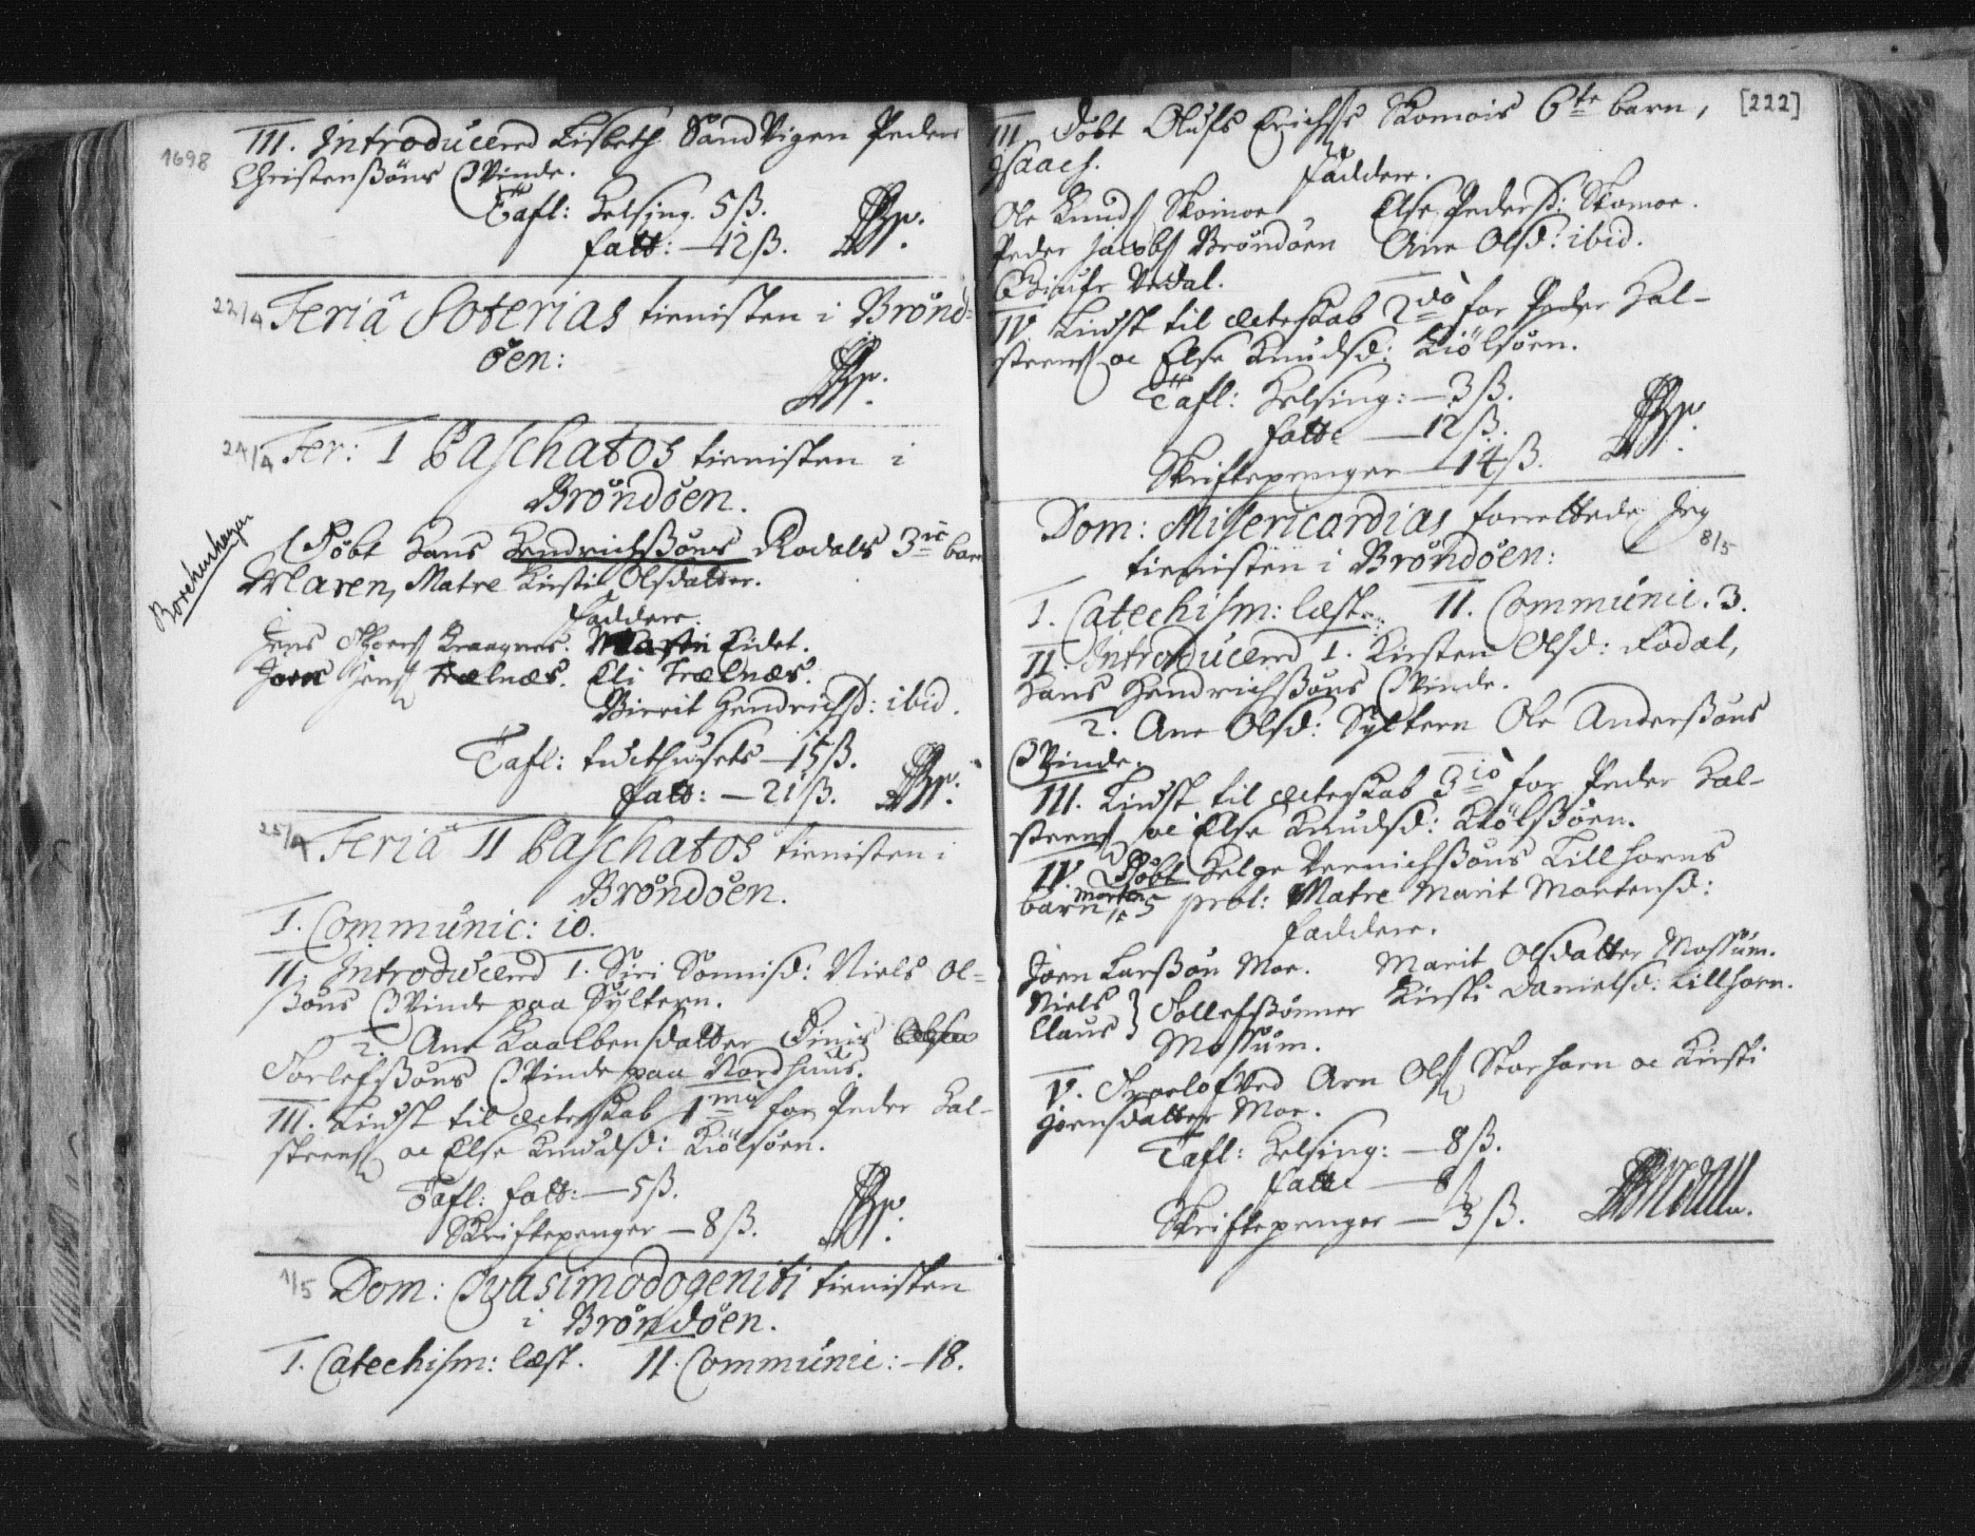 1698
III. Introducered Lisbeth Sandvigen Peder
Christenßøns Qvinde.
Tafl: Helsing. 5 ß.
fatt: — 12 ß.
22/4 Feria Soterias tienisten i Brønd-
øen:
24/4 Fer: I Paschatos tienisten i
Brøndøen.
Døbt Hans Hendrichsßøns Rodals 3ie barn
Maren, Matre Kirsti Olsdatter.
Faddere.
Jens Kraagnes. Eidet.
Jens Trælnæs. Eli Trælnæs.
Birrit Hendrichsd: ibid.
Tafl: — 15 ß.
fatt: — 21 ß.
25/4 Feria II Paschatos tienisten i
Brøndøen.
I. Communic: 10.
II. Introducered 1. Siri Sonnisd: Niels Ol-
ßøns Qvinde paa Sÿltern.
2. Ane datter
Torlefsßøns Qvinde paa Nordhuus.
III. Liust til ecteskab 1mo for Peder Hal-
steens oc Else Knudsd: Kiølsøen.
Tafl: fatt: — 5 ß.
Skriftepenger — 8 ß.
1/5 Dom: Qvasimodogeniti tienisten
i Brøndøen.
I. Catechism: læst. II. Communic: — 18.
[222]
III. Døbt Olufs Erichs Skomois 6te barn,
Isaach.
Faddere.
Ole Knuds Skomoe Else Pedersd: Skomoe.
Peder Jacobs Brøndøen Ane Olsd: ibid.
IV. Liust til ecteskab 2do for Peder Hal-
steens oc Else Knudsd: Kiølsøen.
Tafl: Helsing: — 3 ß.
fatt: — 12 ß.
Skriftepenger — 14 ß.
Dom: Misericordias forrettede Jeg
8/5
tienisten i Brøndøen:
I. Catechism: læst. II. Communic. 3.
II. Introducered 1. Kirsten Olsd: Rodal,
Hans Hendrichsßøns Qvinde.
2. Ane Olsd: Sÿltern Ole Anderßøns
Qvinde.
III. Liust til ecteskab 3io for Peder Hal-
steens oc Else Knudsd: Kiølßøen.
IV. Døbt Helge Lillhorns
Morten
barn 5 prol: Matre Marit Mortensd:
Faddere.
Joen Larßøn Moe. Marit Olsdatter Mossum.
Niels } Tollefsßønner Kirsti Danielsd: Lillhorn.
Claus
Mossum.
V. Trolofved Arn Ols Storhorn oc Kirsti
Joensdatter Moe.
Tafl: Helsing: — 8 ß.
fatt: — 8 ß
Skriftepenger — 3 ß.